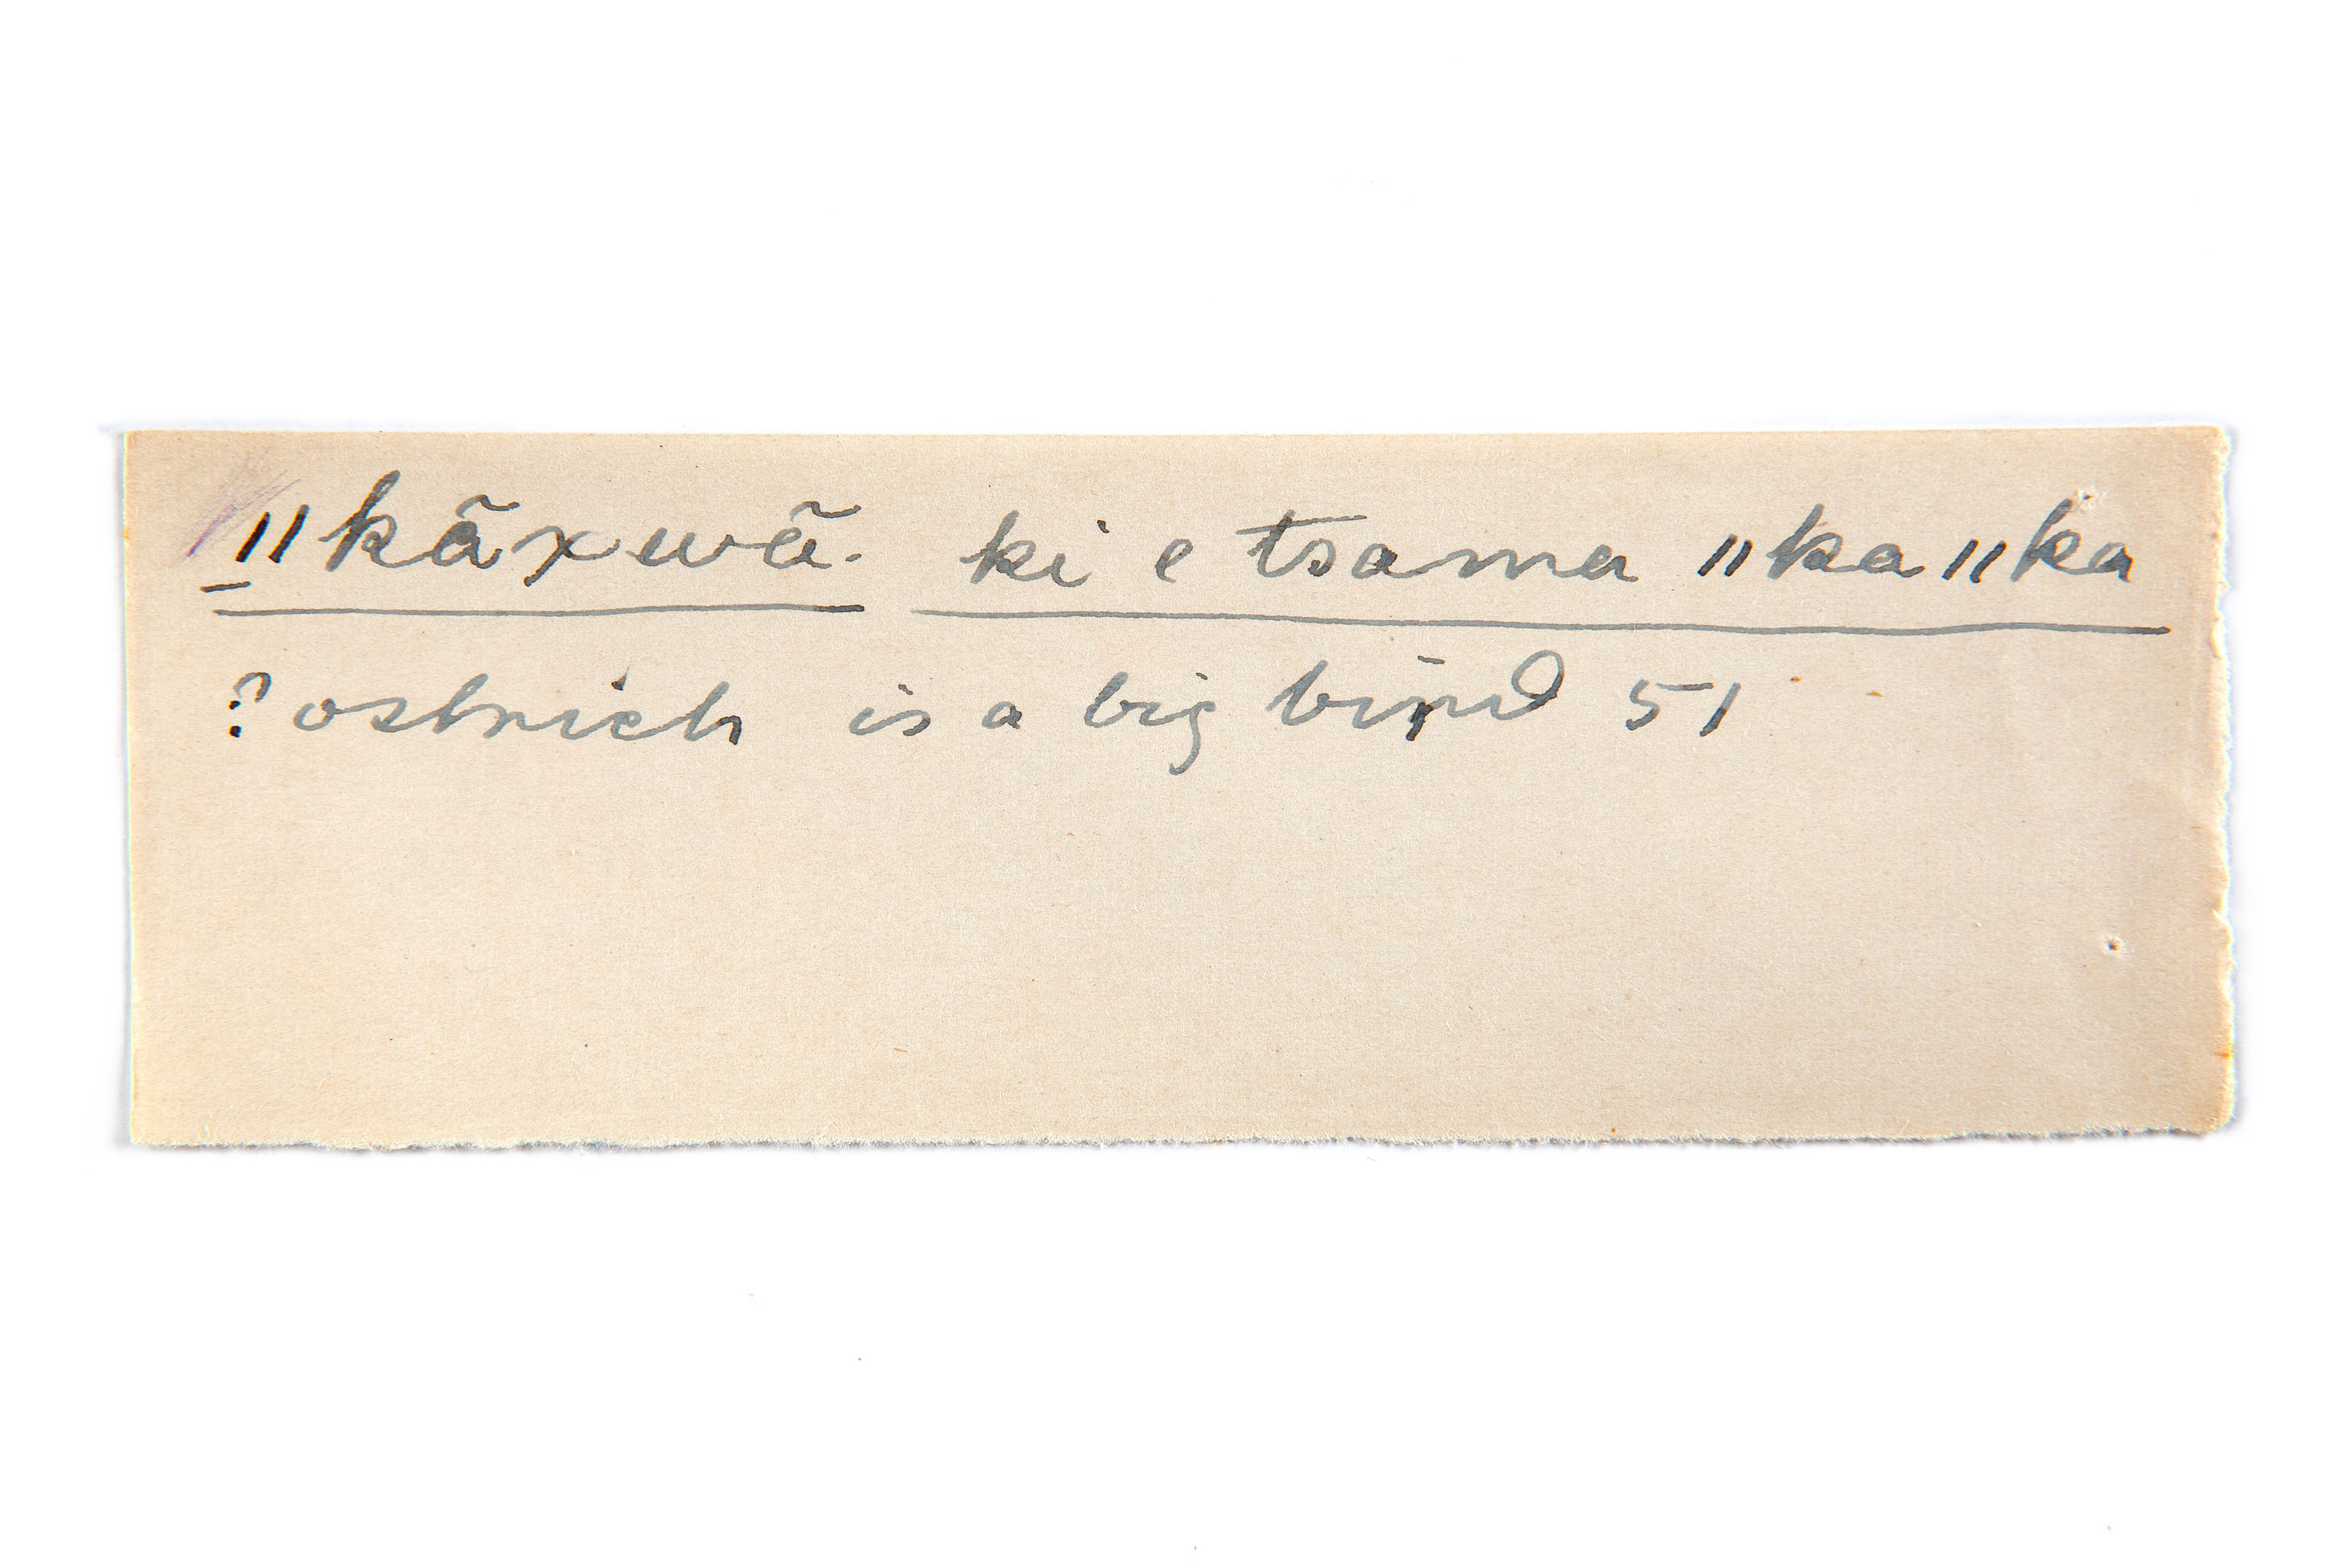 ǁkãxwã. ki e tsama ǁkaǁka
? ostrich is a big bird 51